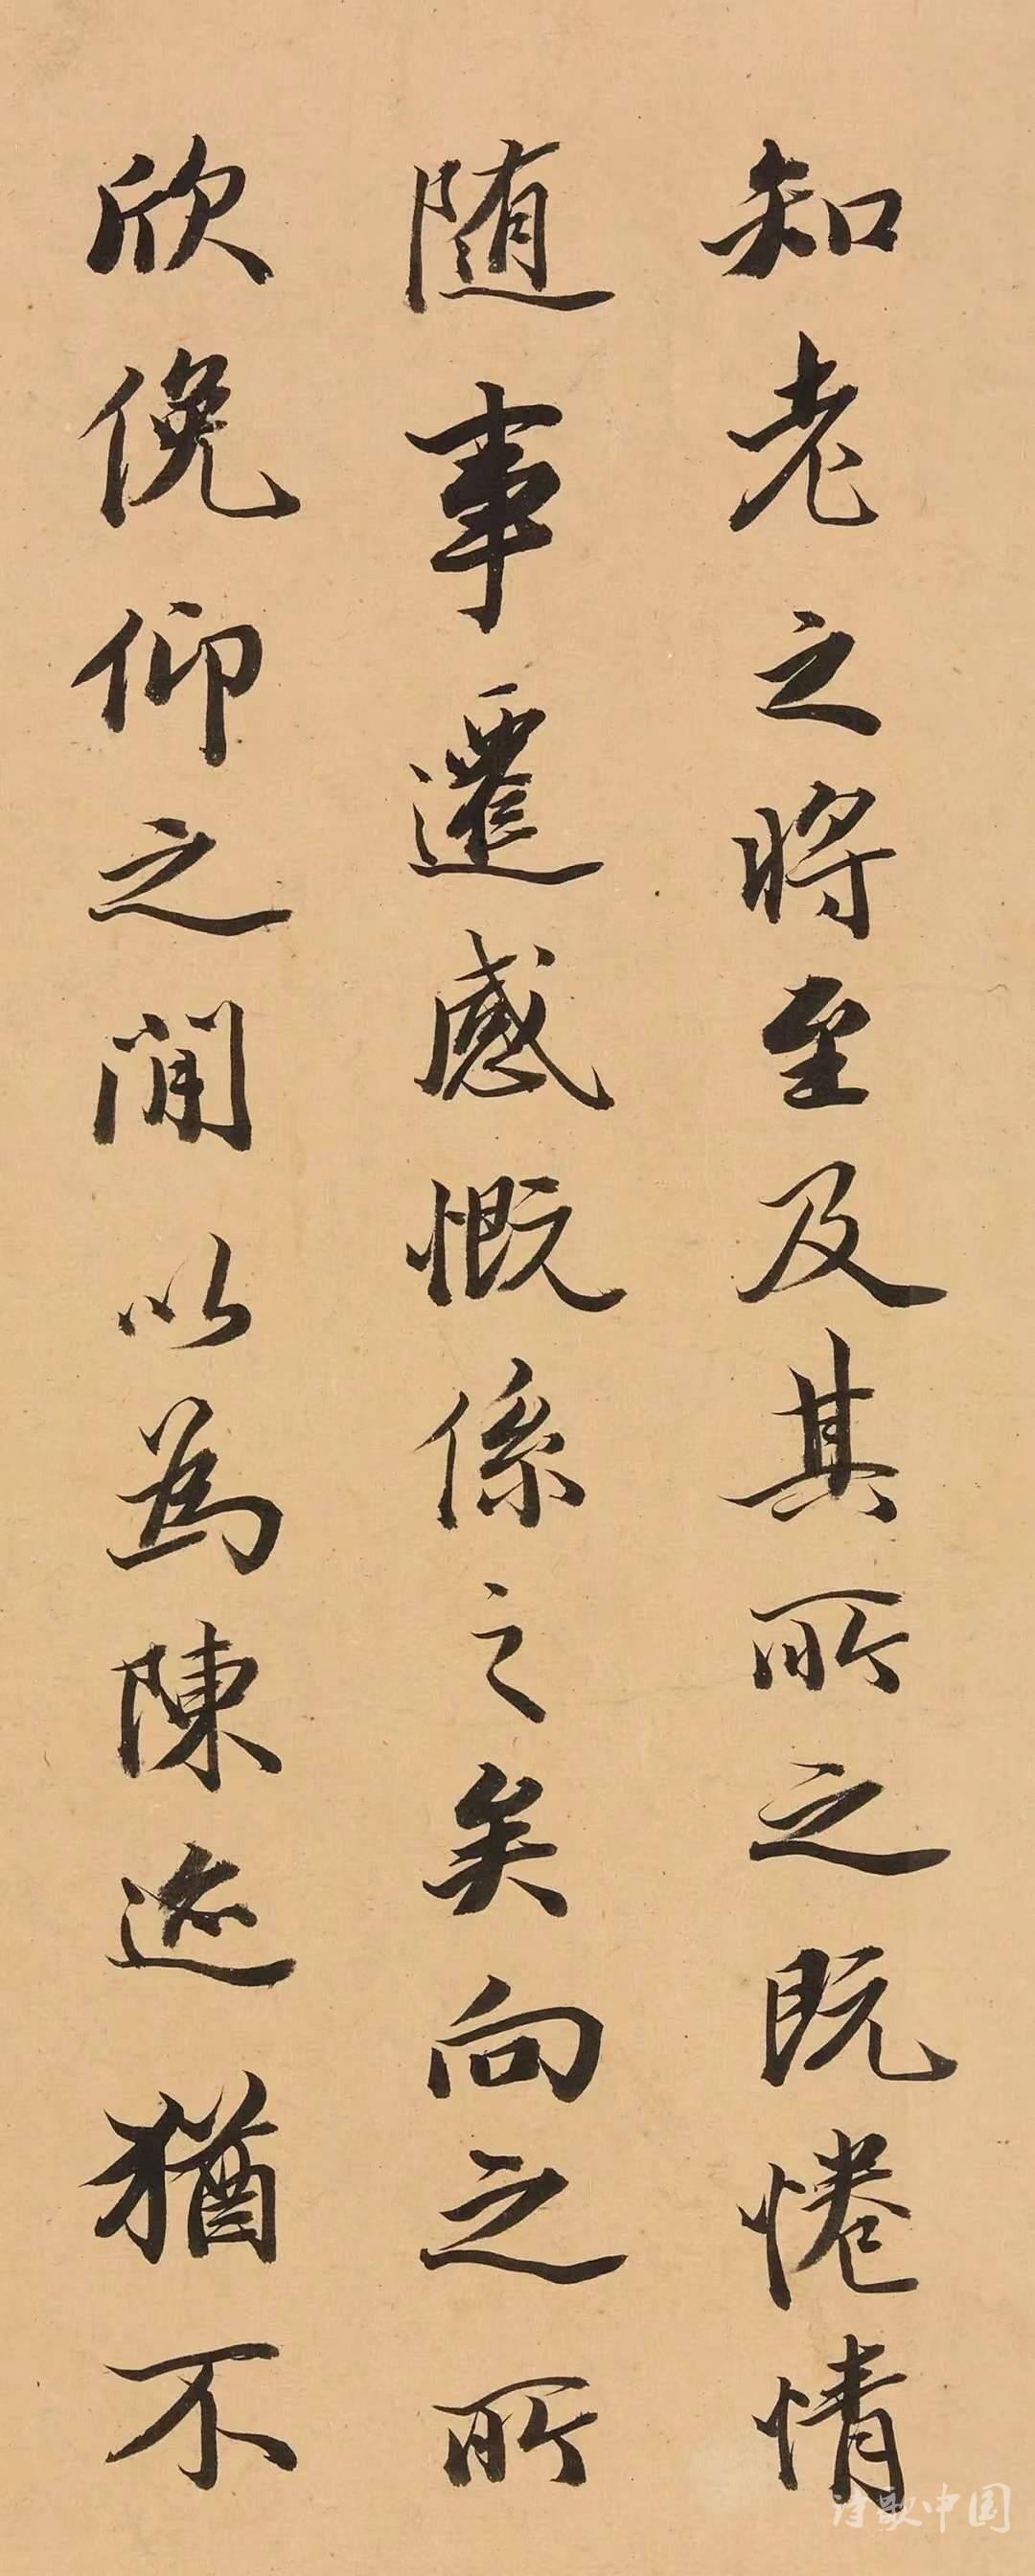 知老之將至及其所之既惓情
随事遷感慨係之矣向之所
欣俛仰之間以為陳迹猶不
诗歌中国